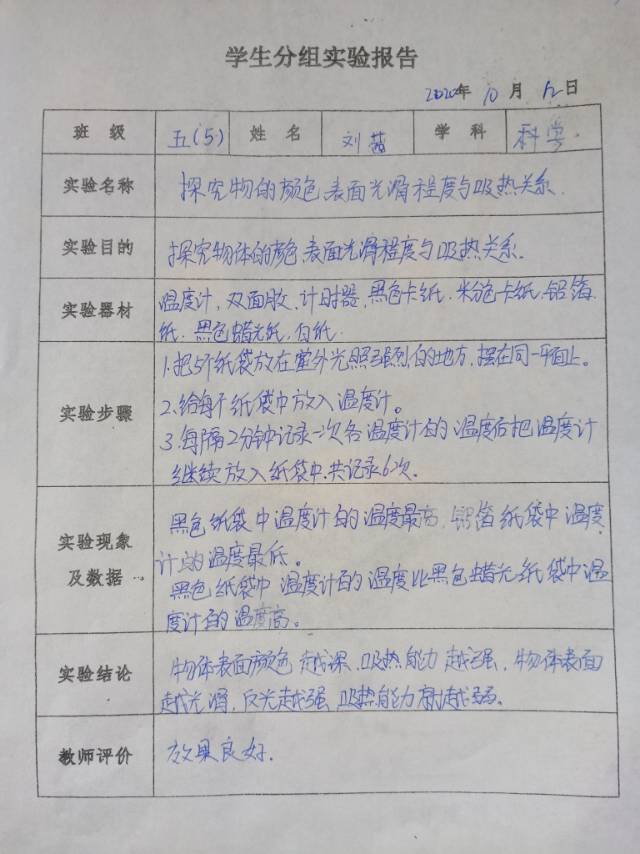 学生分组实验报告
2020年 10 月 12 日
班 级 五(5) 姓 名 刘茜 学 科 科学.
实验名称 探究物的颜色、表面光滑程度与吸热关系.
实验目的 探究物体的颜色、表面光滑程度与吸热关系.
温度计, 双面胶、计时器、黑色卡纸、米分色卡纸、铝箔
实验器材
纸、黑色蜡光纸、白纸.
1.把5个纸袋放在室外光照强烈的地方, 摆在同一平面上。
2.给每个纸袋中放入温度计。
实验步骤
3.每隔2分钟记录一次各温度计的温度后把温度计
继续放入纸袋中.共记录6次.
黑色纸袋中温度计的温度最高, 铝箔纸袋中温度
实验现象
计的温度最低。
及数据
黑色纸袋中温度计的温度比黑色蜡光纸袋中温
度计的温度高。
物体表面颜色越深、吸热能力越强, 物体表面
实验结论
越光滑, 反光越强 吸热能力越弱。
教师评价 效果良好.